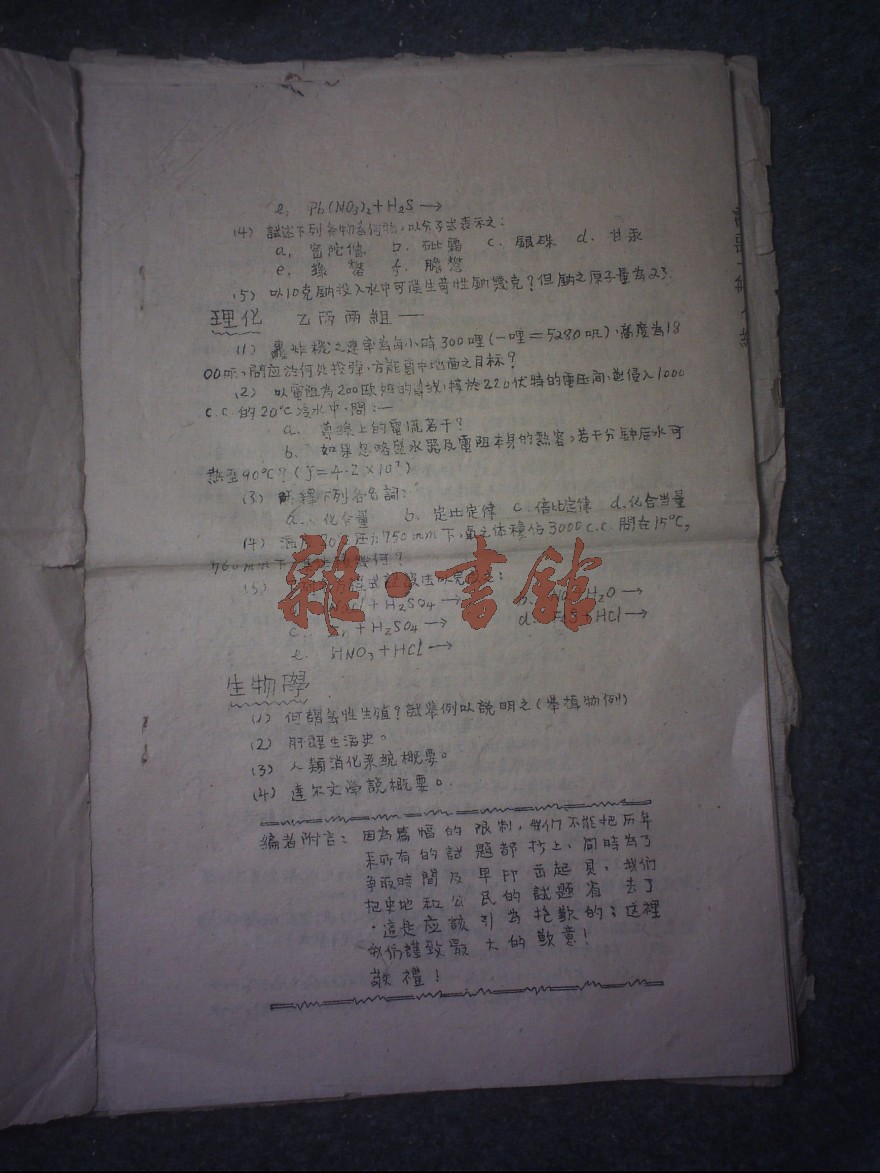 e. Pb(NO3)2+H2S→
(4) 試述下列各物為何物，以分子式表示之：
a. 密陀僧 b. 砒霜 c. 銀硃 d. 甘汞
e. 綠礬 f. 膽礬
(5) 以10克鈉投入水中可產生苛性鈉幾克？但鈉之原子量為23.
理化 乙丙兩組—
(1) 轟炸機之速率為每小時300哩(一哩=5280呎)，高度為18
00呎，問应於何处投弹，方能擊中地面之目标？
(2) 以電阻為200欧姆的導线，接於220伏特的電压間，並侵入1000
c.c.的20°C冷水中，問：—
a. 導線上的電流若干？
b. 如果忽略盛水器及電阻本身的熱容，若干分鈡后水可
熱至90°C？(J=4.2×10⁷)
(3) 解釋下列各名詞：
a. 化合量 b. 定比定律 c. 倍比定律 d. 化合当量
(4) 压力750mm下，氣之体積佔3000c.c. 問在15°C,
760mm下 幾何？
(5)
+H2SO4→ H2O→
c. +H2SO4→ d. FeS+HCl→
e. HNO3+HCl→
生物學
(1) 何謂無性生殖？試舉例以說明之(舉植物例)
(2) 肝蛭生活史。
(3) 人類消化系統概要。
(4) 達尔文學說概要。
編者附言：因為篇幅的限制，我们不能把历年
来所有的試題都抄上，同時為了
争取時間及早印出起見，我们
把史地和公民的試題省去了
，這是应該引為抱歉的；这裡
我们謹致最大的歉意！
敬禮！
雜·書館